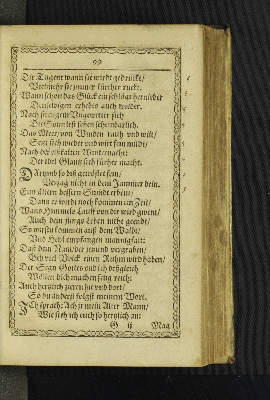 99
Die Tugent wann sie wirdt gedruckt/
Vielmehr sie jmmer fürther ruckt.
Wann schon das Glück ein schlägt hernider
Denselbigen erhebts auch wider.
Nach strengem Ungewitter sich
Die Sonn lest sehen scheinbarlich.
Das Meer/ von Winden rauh und wilt/
Setzt sich wieder und wirt fein mildt/
Nach der eißkalten Winternacht:
Der edel Glantz sich fürher macht.
Darumb so biß getröstet fein/
Verzag nicht in dem Jammer dein.
Eim ältern bessern Stundt erbein/
Dann es wirdt noch kommen ein Zeit/
Wann Himmels Lauff von dir wird gwent/
Auch dein jungs Leben nicht geendt/
So wirstu kommen auß dem Waldt/
Und Heyl empfangen manigfalt:
Daß dein Nam/ der jetzund vergraben/
Bey viel Volck einen Ruhm wird haben/
Der Segn Gottes und ich deßgleich
Wöllen dich machen selig reich:
Auch herrlich zieren hie und dort/
So du anderst folgst meinem Wort.
Ich sprach: Ach jr mein Alter Mann/
Wie sich ich euch so hertzlich an:
G ij Mag